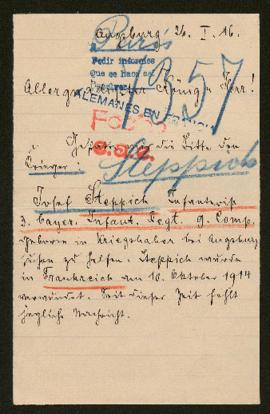 Augsburg 26. I. 16.
Paris
Pedir informes
Que se hace sa
1357
Allergnädigster König Herr!
ALEMANES EN
Gestatten die Bitte den
Steppich
Josef Steppich Infanterist
3. bayer. Infant. Regt. 9. Comp.
Geboren in Kriegshaber bei Augsburg
suchen zu helfen. Steppich wurde
in Frankreich am 10. Oktober 1914
verwundet. Seit dieser Zeit fehlt
jegliche Nachricht.